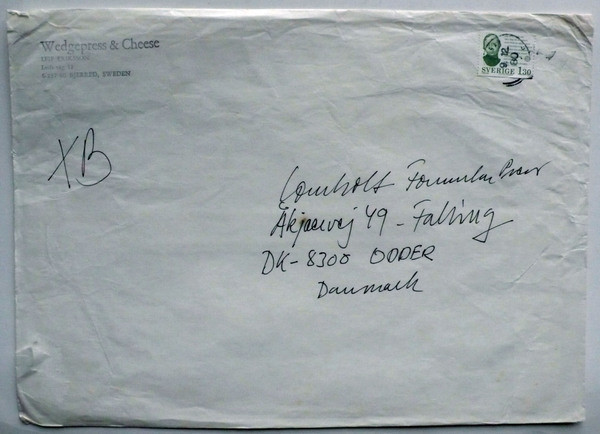 Wedgepress & Cheese
BJERRED, SWEDEN
SVERIGE 130
XB
Lomholt Formular Press
Åkjaervej 49 - Falling
DK-8300 ODDER
Danmark